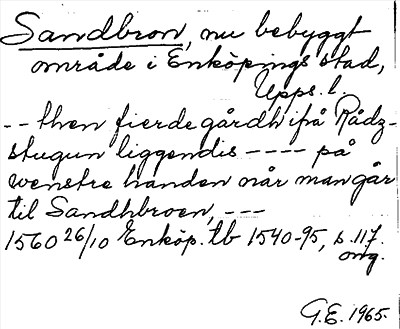 Sandbron, nu bebyggt
område i Enköpings stad,
Upps. l.
-- then fierde gårdh ifrå Rådz-
stugun liggendis ---- på
wenstre handen når man går
til Sandhbroen, ---
1560 26/10 Enköp. tb 1540-95, s. 117.
orig.
G.E. 1965.